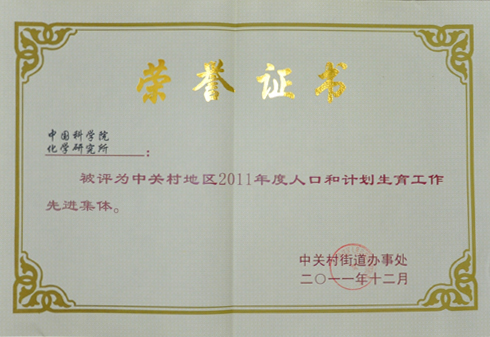 荣誉证书
中国科学院
化学研究所：
被评为中关村地区2011年度人口和计划生育工作
先进集体。
中关村街道办事处
二〇一一年十二月